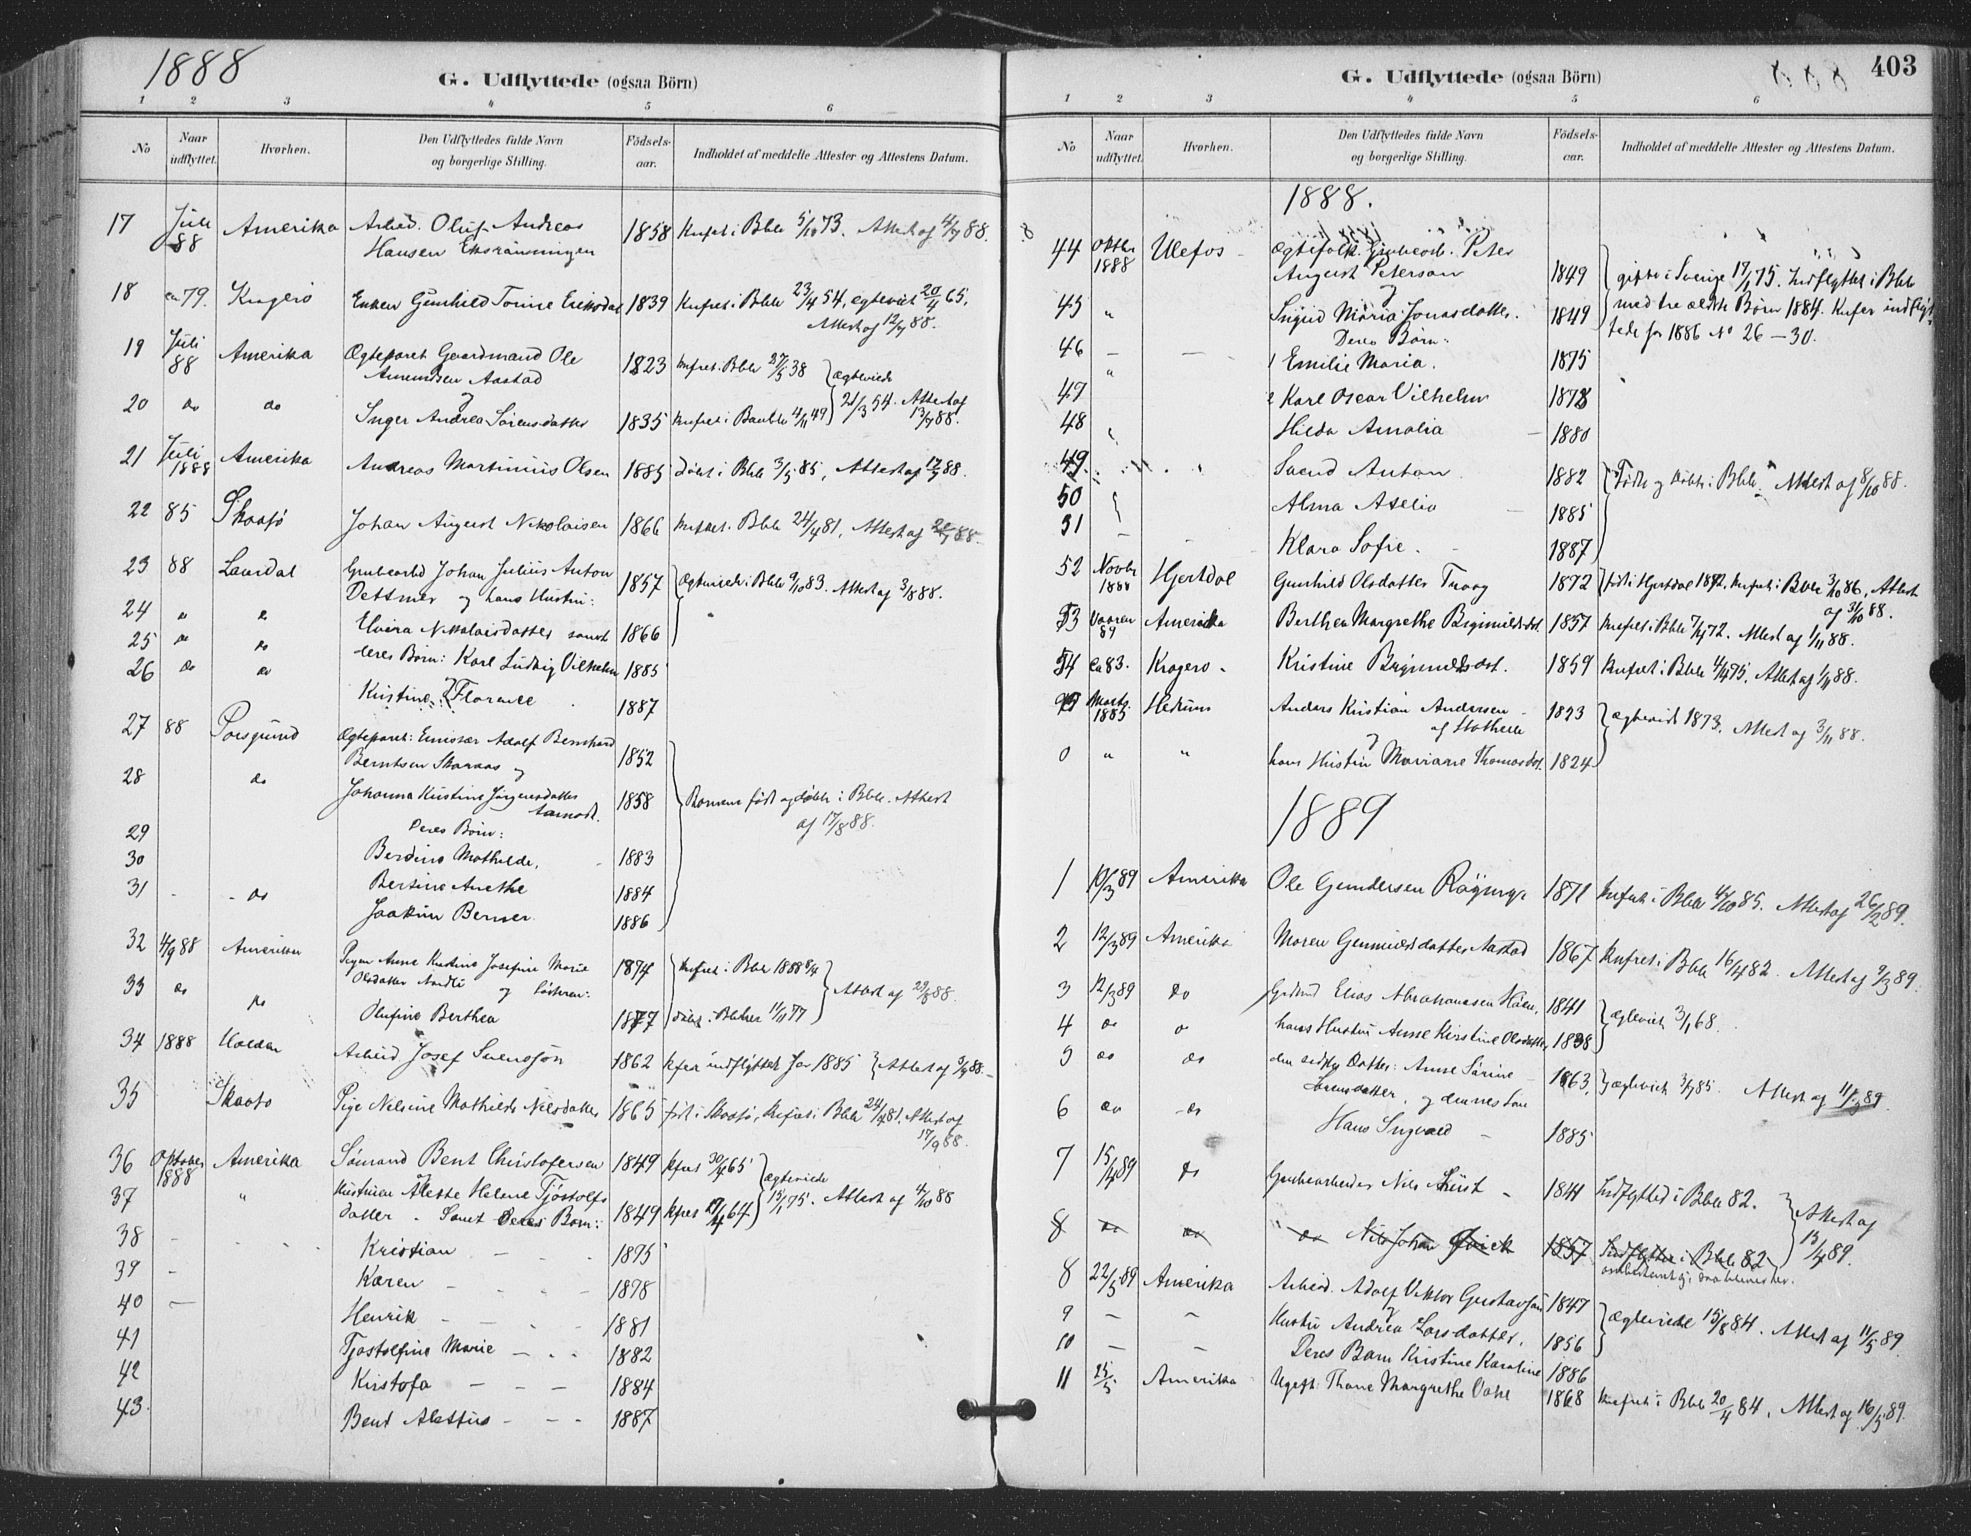 1888
G. Udflyttede (ogsaa Börn)
1 2 3 4 5 6
No Naar udflyttet. Hvorhen. Den Udflyttedes fulde Navn og borgerlige Stilling. Födselsaar. Indholdet af meddelte Attester og Attestens Datum.
17 Juli 88 Amerika Arbeid. Oluf Andreas 1858 Knfret i Bble 5/10 73. Attest af 4/7 88.
Hansen
18 ca 79. Kragerø Enken Gunhild Torine Eriksdat 1839 Knfret i Bble 23/4 54, ægteviet 20/4 65,
Attest af 12/7 88.
19 Juli 88 Amerika Ægteparet Gaardmand Ole 1823 Knfret. Bble 27/5 38
Amundsen Aastad og ægteviede
20 do do Inger Andrea Sörensdatter 1835 Knfret i Bamble 4/11 49 21/3 54. Attest af 13/7 88.
21 Juli 1888 Amerika Andreas Martinius Olsen 1885 döbt i Bble 3/5 85, Attest af 17/7 88.
22 85 Skaatö Johan August Nikolaisen 1866 Knfret i Bble 24/4 81, Attest af
23 88 Laurdal Grubearbd Johan Julius Anton 1857 Ægteviede i Bble 9/10 83. Attest af 3/8 88.
Dettmer og hans Hustru:
24 " " Elvira Nikolaisdatter samt 1866
25 do do deres Börn: Karl Ludvig Vilhelm 1885
26 do do Kristine Florence 1887
27 88 Porsgrund Ægteparet: Emissær Adolf Bernhard 1852
Berntsen Skaraas og
28 do Johanna Kristine Jörgensdatter 1858 Barnene födt og döbte i Bble. Attest
Aamodt. af 17/8 88.
Deres Börn:
29
30 Berdine Mathilde, 1883
31 - - do Bertine Anethe 1884
Joakim Berner 1886
32 4/9 88 Amerika Pigen Anne Kirstine Josefine Marie 1874 Knfret i Bble
Olsdatter og Attest af 29/8 88.
33 do do Olufine Berthea 1877 döbt i Bble 11/11 77
34 1888 Holden Arbeid Josef Svensson 1862 kfer indflyttet for 1885 Attest af
35 Skaatö Pige Nilsine Mathilde Nilsdatter 1865 födt i Skaatö, Knfret i Bble 24/4 81, Attest af
17/9 88.
36 Oktober 1888 Amerika Sömand Bent Christofersen 1849 kfret 30/4 65 ægteviede
37 " Kustruen Aleste Helene Tjöstolfs 1849 kfret 17/4 64 15/1 75. Attest af 4/10 88
datter. Samt Deres Börn:
38 - Kristian 1875
39 - Karen 1878
40 - Henrik 1881
41 Tjöstolfine Marie 1882
42 Kristofa 1884
43. Bent Alettius 1887
403
G. Udflyttede (ogsaa Börn)
1 2 3 4 5 6
No Naar udflyttet. Hvorhen. Den Udflyttedes fulde Navn og borgerlige Stilling. Födselsaar. Indholdet af meddelte Attester og Attestens Datum.
1888.
44 Oktbr 1888 Ulefos Ægtefolk. Grubearb. Peter
August Peterson 1849 gifte i Sverige 17/1 75. Indflyttet i Bble
og
45 " Sigrid Maria Jonasdatter. 1849 med tre ældste Børn 1884. Knfer indflyt-
Deres Börn: tede for 1886 No 26 - 30.
46 - - 1 Emilie Maria. 1875
47 " 2 Karl Oscar Vilhelm 1878
48 " Hilda Amalia 1880
49 Svend Anton 1882 Födte og döbte i Bble. Attest af 8/10 88.
50 Alma Aselia 1885
51 - Klara Sofie. 1887
52 Novbr 1888 Hjertdal Gunhild Olsdatter Traag 1872 födt i Hjertdal 1872. Knfret i Bble 3/10 86, Attest
af 31/10 88.
53 Vaaren 89 Amerika Berthea Margrethe 1857 Knfret i Bble 7/4 72. Attest af 1/11 88.
54 ca 83. Kragerø - Kristine 1859 Knfret i Bble 4/4 75, Attest af 1/11 88.
Marts 1885 Hedrum Anders Kristian Andersen 1823 ægteviede 1873. Attest af 3/11 88.
af Stathelle
og
0 " " hans Hustru Mariane Thomasdat. 1824
1889
1 19/3 89 Amerika Ole Gundersen 1871 Knfret i Bble 4/10 85. Attest af 26/2 89.
2 12/3 89 Amerika Maren Gunnersdatter Aastad 1867 Knfret i Bble 16/4 82. Attest af 9/3 89.
3 12/3 89 do Elias Abrahamsen 1841 ægteviet 3/1 68.
4 do " hans Hustru Anne Kirstine Olsdatter 1838
5 do do Datter: Anne Sörine 1863, ægteviet 3/7 85. Attest af 11/3 89.
Jörensdatter, og dennes Søn
6 do - do Hans Ingvald 1885
7 15/4 89 do Grubearbeider Nils 1841 Indflytted i Bble 82.
Attest af
8 do do do Nils Johan 1857 Indflyttet i Bble 82 15/4 89.
8 22/5 89 Amerika Arbeid. Adolf Viktor Gustavson 1847
og
9 - - Hustru Andrea Larsdatter, 1856 ægteviede 15/8 84. Attest af 11/5 89
10 - - Deres Barn Kristine Karoline 1886
11 25/5 Amerika Ugift. Thone Margrethe Dahl 1868 Knfret i Bble 20/4 84, Attest af 16/5 89.